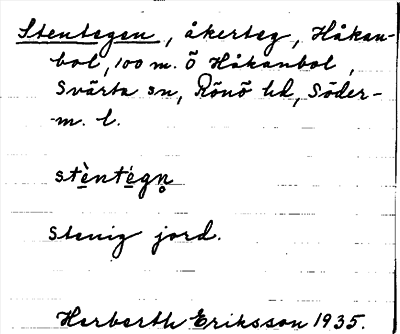 Stentegen, åkerteg, Håkan-
bol, 100 m. Ö Håkanbol,
Svärta sn, Rönö hd, Söder-
m. l.
stèntégn̥
Stenig jord.
Herberth Eriksson 1935.